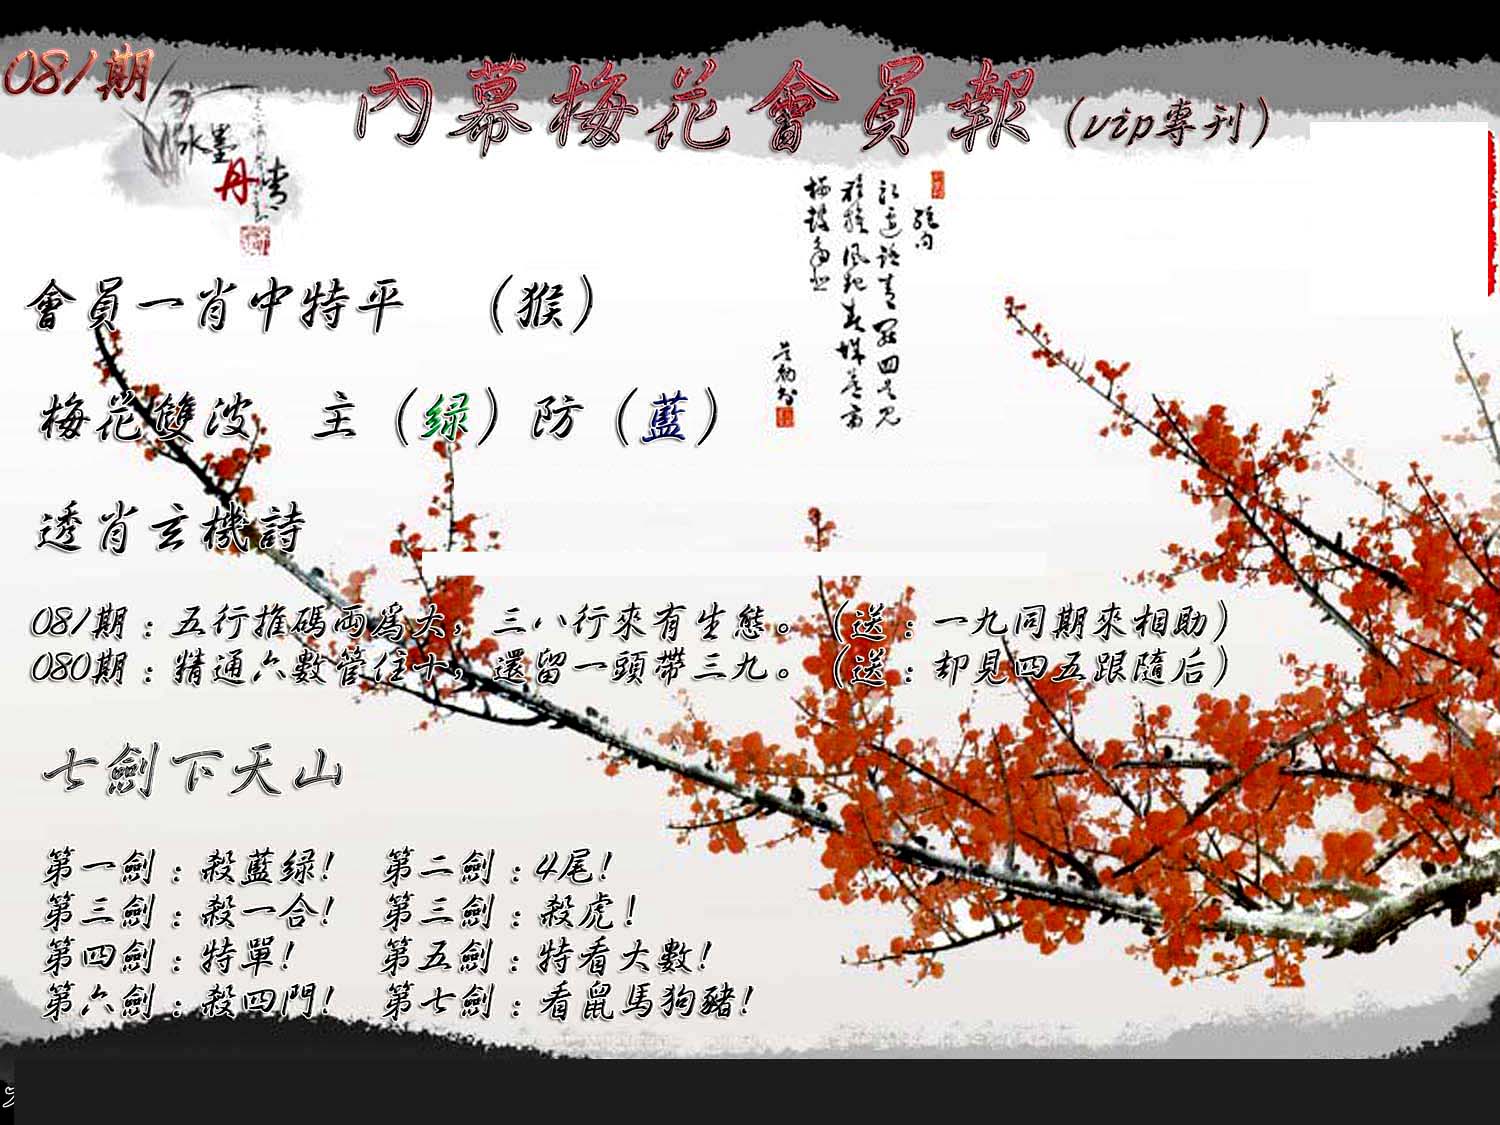 081期
內幕梅花會員報（vip專刊）
水墨
丹青
絕句
會員一肖中特平　（猴）
梅花雙波　主（绿）防（藍）
透肖玄機詩
081期：五行推碼両爲大，三八行來有生態。（送：一九同期來相助）
080期：精通六數管住十，還留一頭帶三九。（送：却見四五跟隨后）
七劍下天山
第一劍：殺藍绿！　第二劍：4尾！
第三劍：殺一合！　第三劍：殺虎！
第四劍：特單！　第五劍：特看大數！
第六劍：殺四門！　第七劍：看鼠馬狗豬！